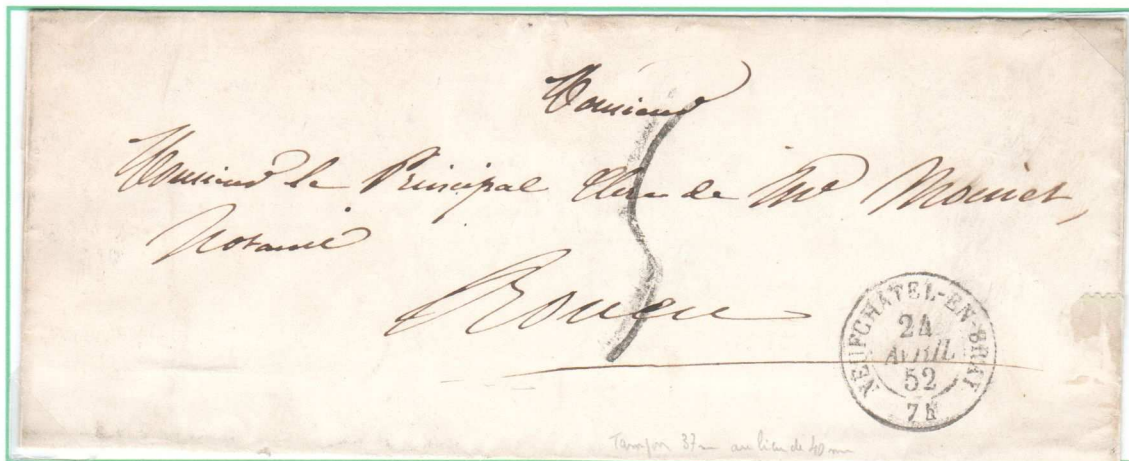 Monsieur
Monsieur le Principal Clerc de Me
Notaire
Rouen
NEUFCHATEL-EN-BRAY
24
AVRIL
52
7E
Tampon 37 mm au lieu de 40 mm